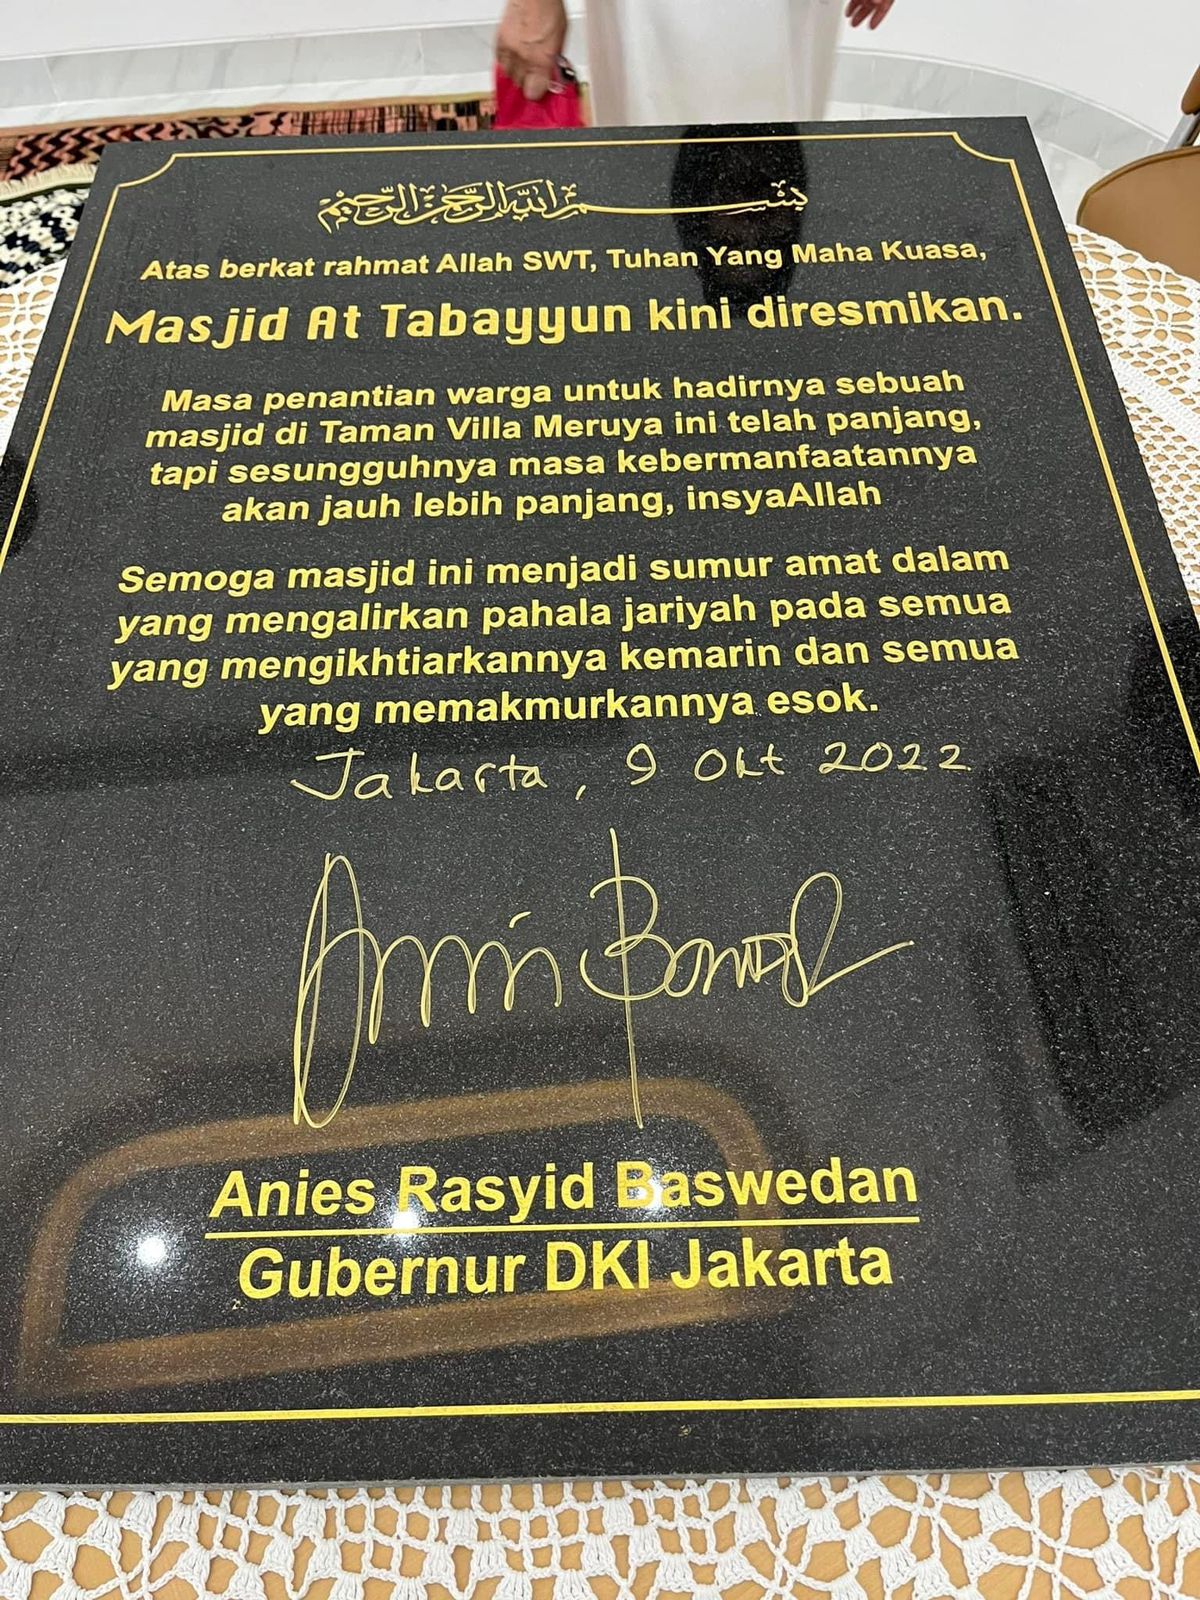 بسم الله الرحمن الرحيم
Atas berkat rahmat Allah SWT, Tuhan Yang Maha Kuasa,
Masjid At Tabayyun kini diresmikan.
Masa penantian warga untuk hadirnya sebuah
masjid di Taman Villa Meruya ini telah panjang,
tapi sesungguhnya masa kebermanfaatannya
akan jauh lebih panjang, insyaAllah
Semoga masjid ini menjadi sumur amat dalam
yang mengalirkan pahala jariyah pada semua
yang mengikhtiarkannya kemarin dan semua
yang memakmurkannya esok.
Jakarta, 9 Okt 2022
Anies Rasyid Baswedan
Gubernur DKI Jakarta